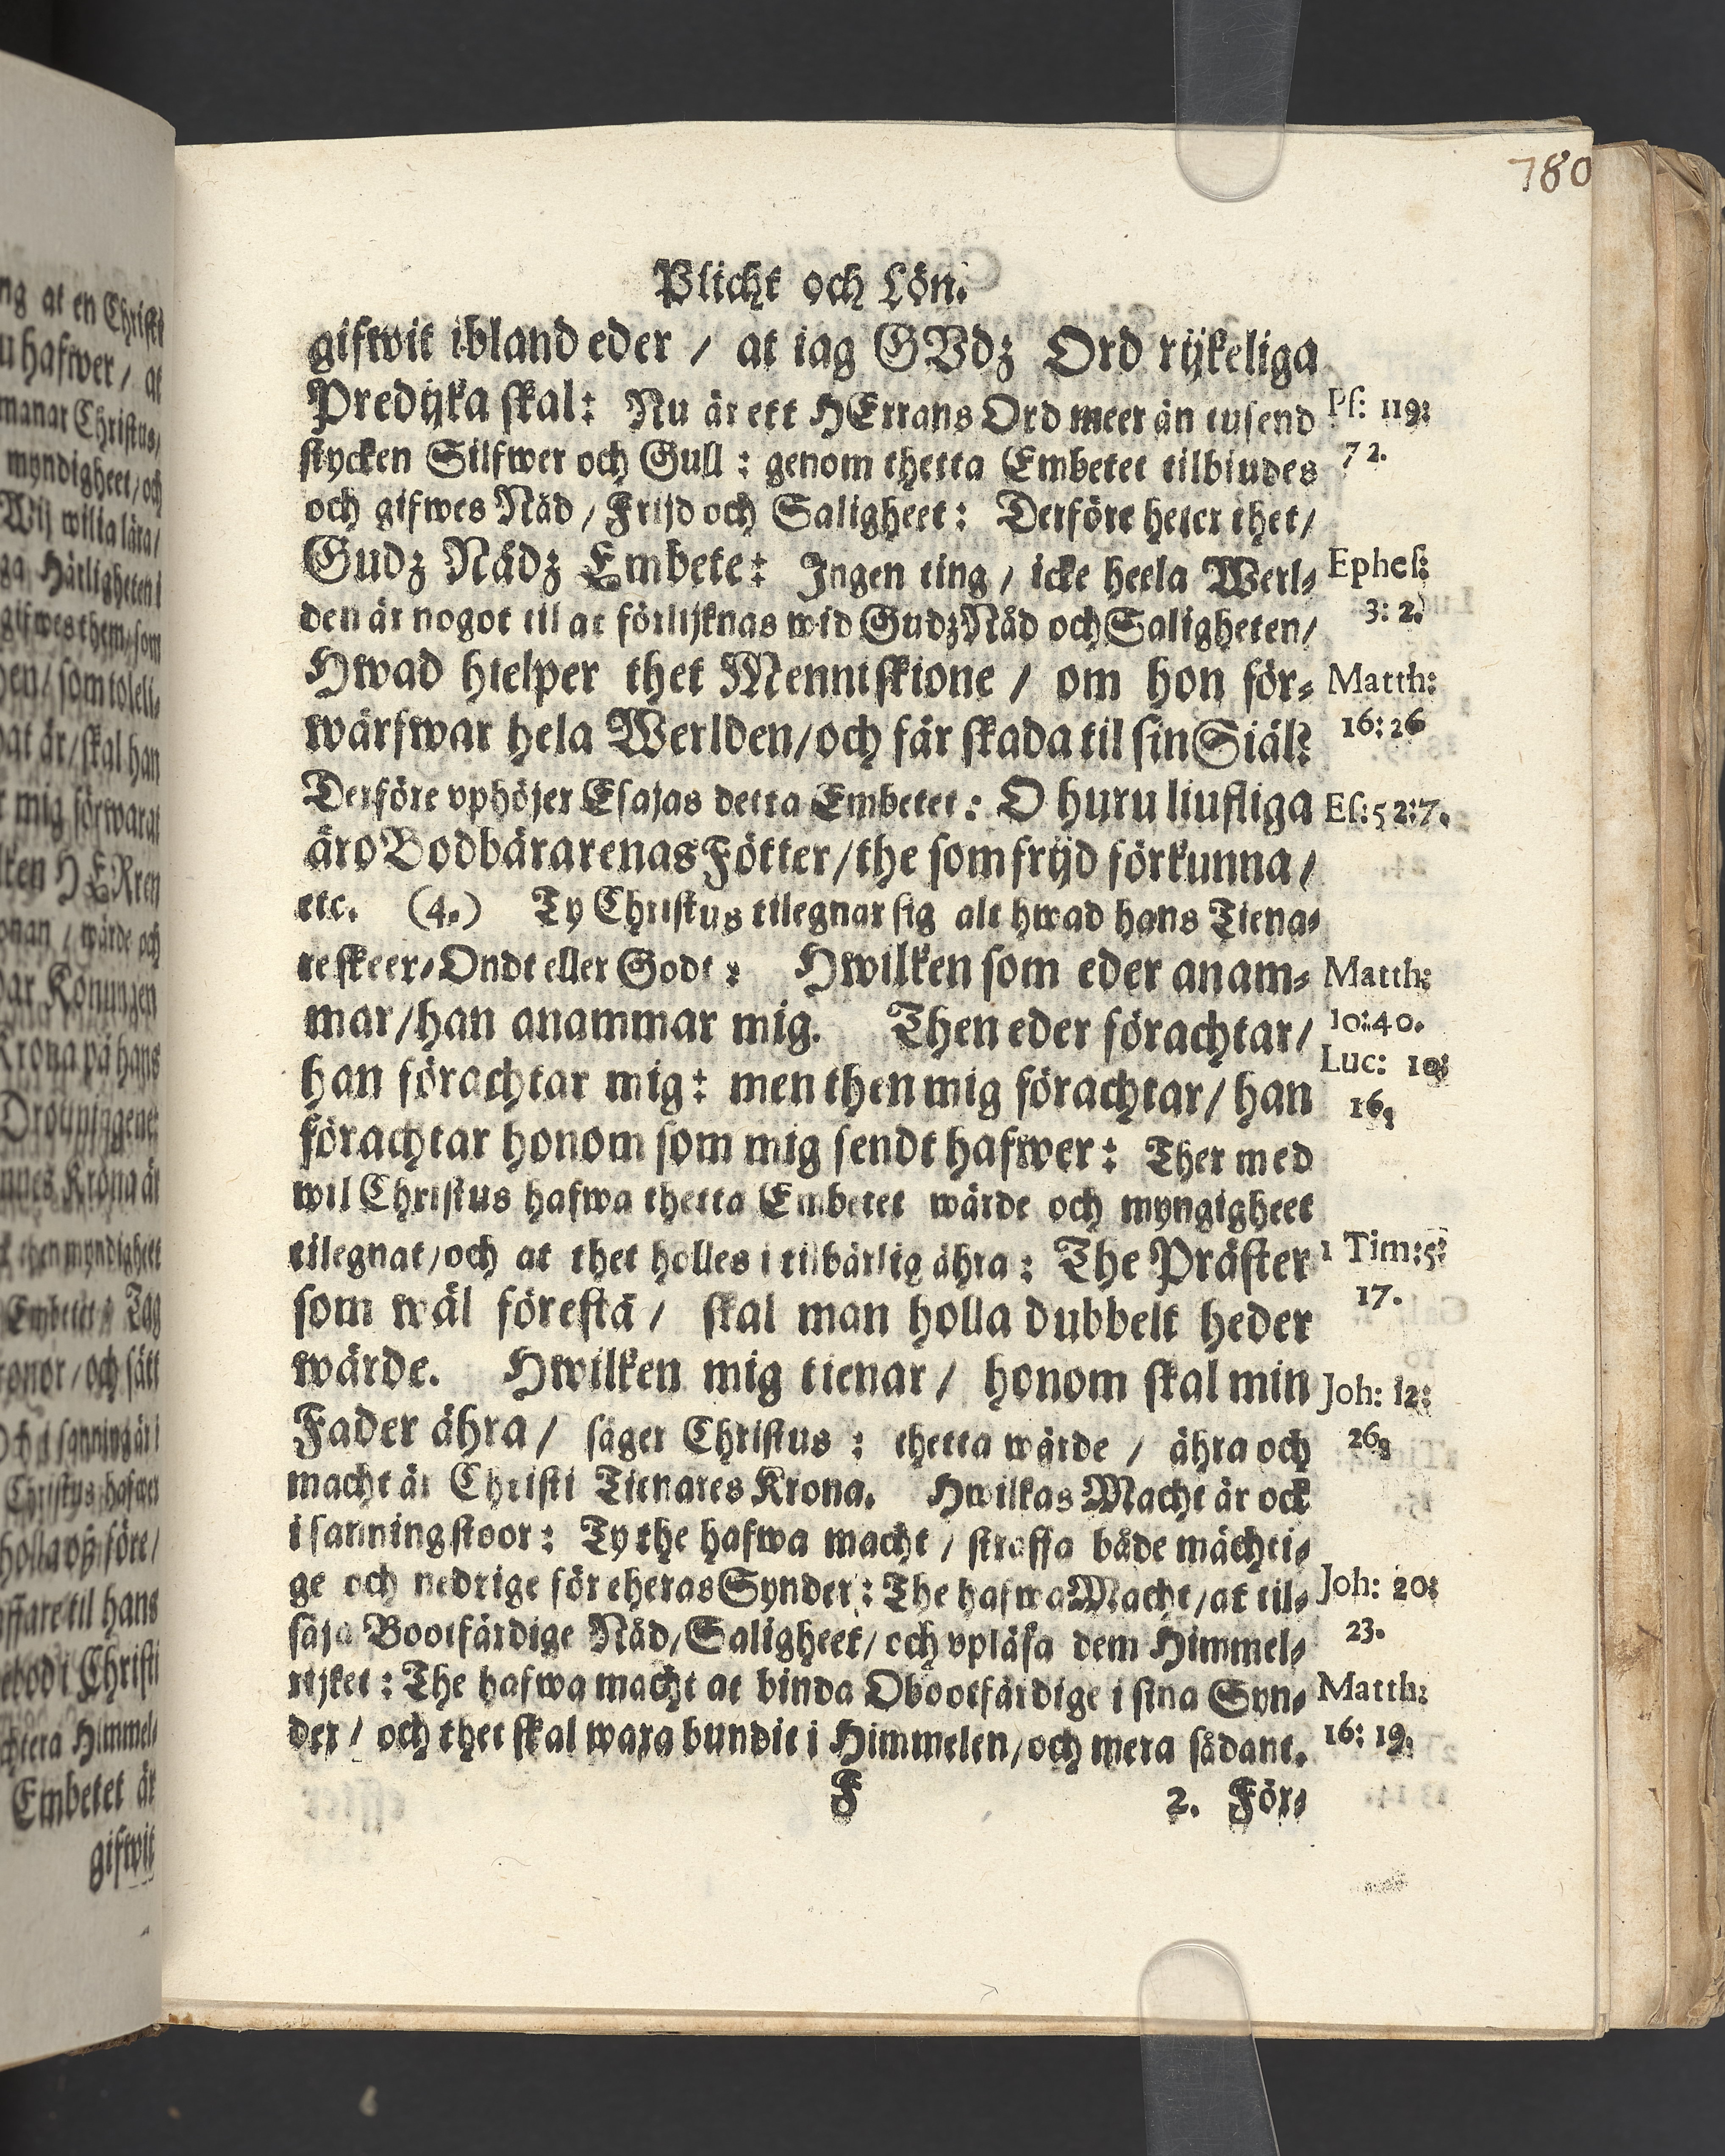 780
Plicht och Lön.
gifwit ibland eder / at iag GVdz Ord rijkeliga
Predijka skal: Nu är ett HErrans Ord meer än tusend
Ps: 119:
72.
stycken Silfwer och Gull : genom thetta Embetet tilbiudes
och gifwes Nåd / Frijd och Saligheet: Derföre heter thet /
Gudz Nådz Embete: Ingen ting / icke heela Werl-
Ephes:
3: 2.
den är nogot til at förlijknas wid Gudz Nåd och Saligheten /
Hwad hielper thet Menniskione / om hon för-
Matth:
16: 26
wärfwar hela Werlden / och får skada til sin Siäl?
Derföre vphöjer Esajas detta Embetet: O huru liufliga
Es: 52:7.
äro Bodbärarenas Fötter / the som frijd förkunna /
etc. (4.) Ty Christus tilegnar sig alt hwad hans Tiena-
re skeer, Ondt eller Godt : Hwilken som eder anam-
Matth:
10:40.
mar / han anammar mig. Then eder förachtar /
Luc: 10:
16.
han förachtar mig: men then mig förachtar / han
förachtar honom som mig sendt hafwer: Ther med
wil Christus hafwa thetta Embetet wärde och myngigheet
tilegnat / och at thet holles i tilbärlig ähra : The Präster
1 Tim:5:
17.
som wäl förestå / skal man holla dubbelt heder
wärde. Hwilken mig tienar / honom skal min
Joh: 12:
26.
Fader ähra / säger Christus : thetta wärde / ähra och
macht är Christi Tienares Krona. Hwilkas Macht är ock
i sanning stoor: Ty the hafwa macht / straffa både mächti-
ge och nedrige för theras Synder: The hafwa Macht / at til-
Joh: 20:
23.
säja Bootfärdige Nåd / Saligheet / och vpläsa dem Himmel-
rijket : The hafwa macht at binda Obootfärdige i sina Syn-
Matth:
16: 19.
der / och thet skal wara bundit i Himmelen / och mera sådant.
F 2. För-